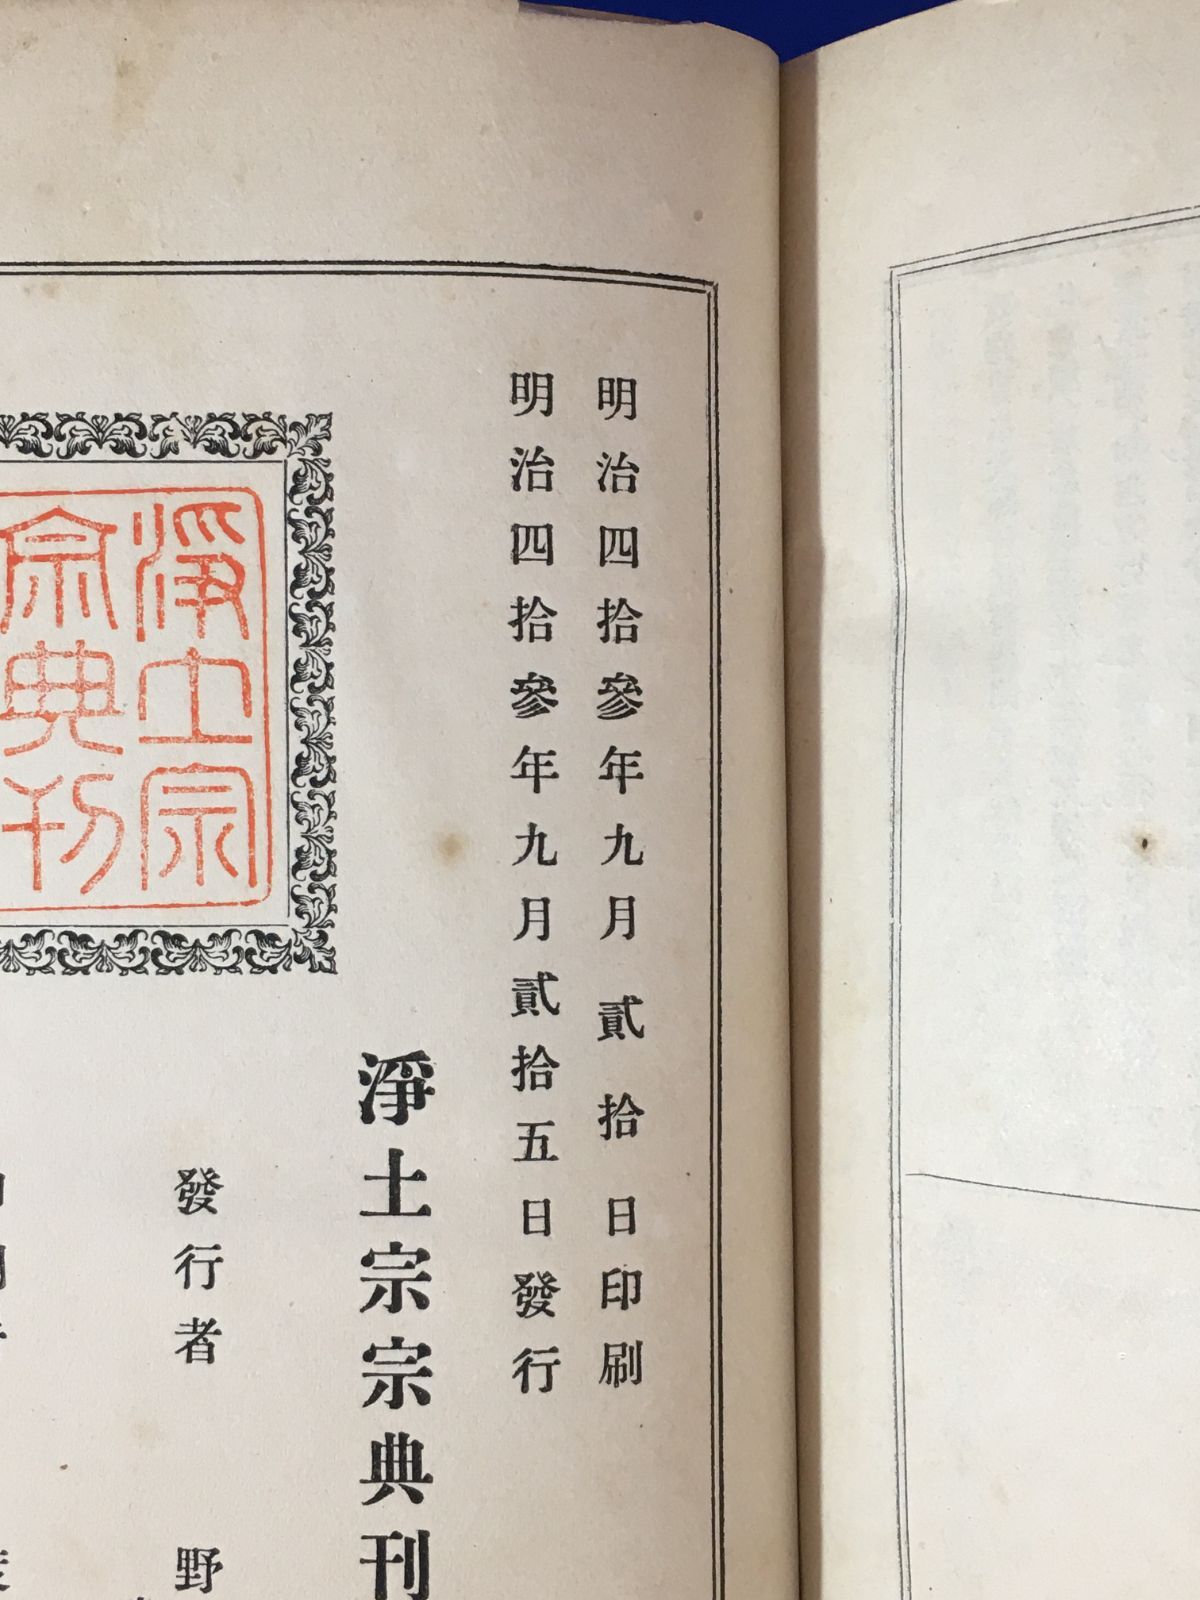 明治四拾參年九月貳拾日印刷
明治四拾參年九月貳拾五日發行
淨土宗宗典刊
淨土宗
宗典刊
發行者 野